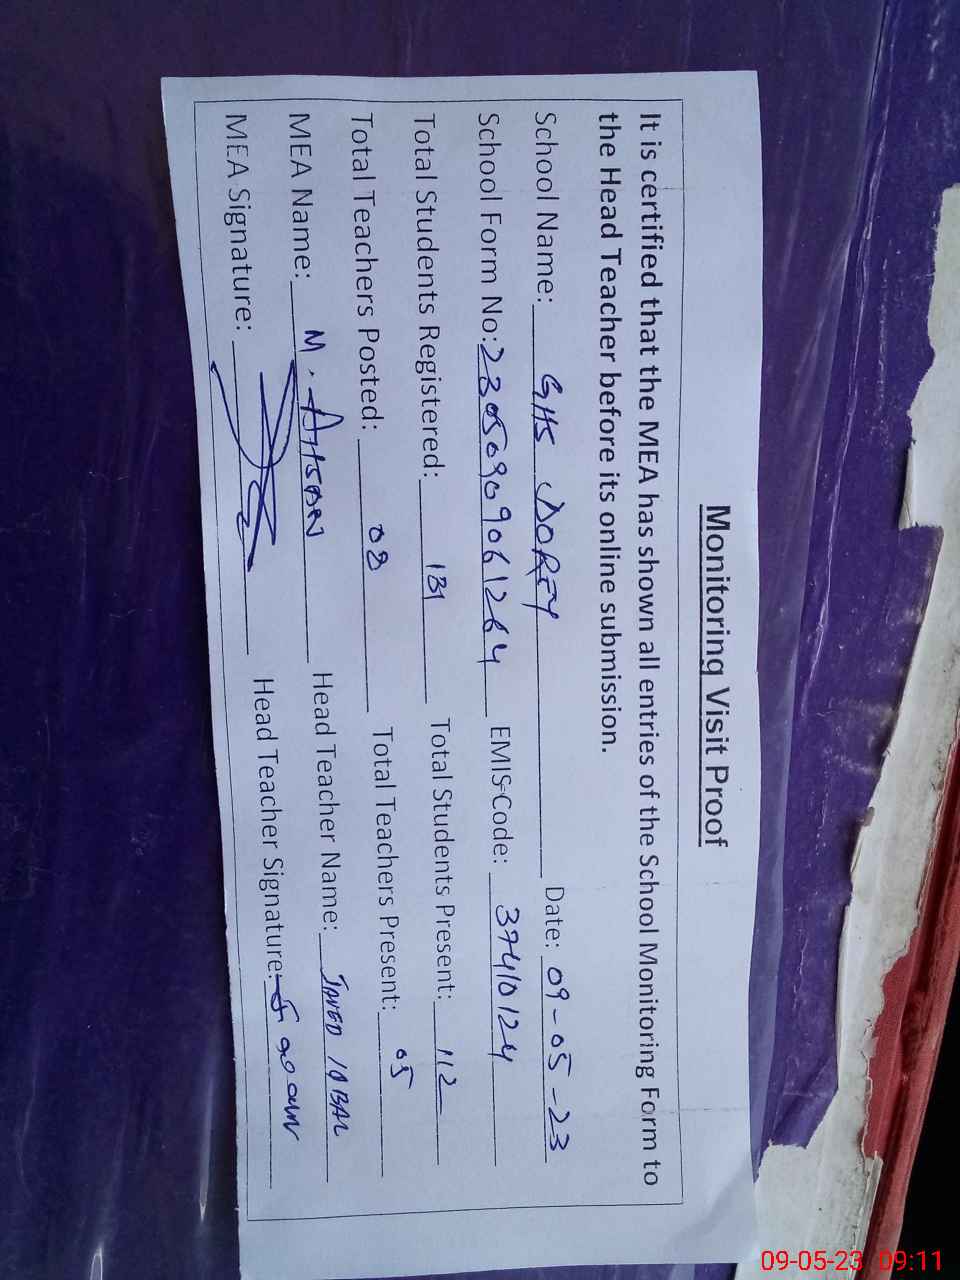 Monitoring Visit Proof
It is certified that the MEA has shown all entries of the School Monitoring Form to
the Head Teacher before its online submission.
School Name: GHS DOREY Date: 09-05-23
School Form No: 23050909061264 EMIS Code: 37410124
Total Students Registered: 131 Total Students Present: 112
Total Teachers Posted: 08 Total Teachers Present: 05
MEA Name: M. AHSAN Head Teacher Name: JAVED IQBAL
MEA Signature: Head Teacher Signature:
09-05-23 09:11